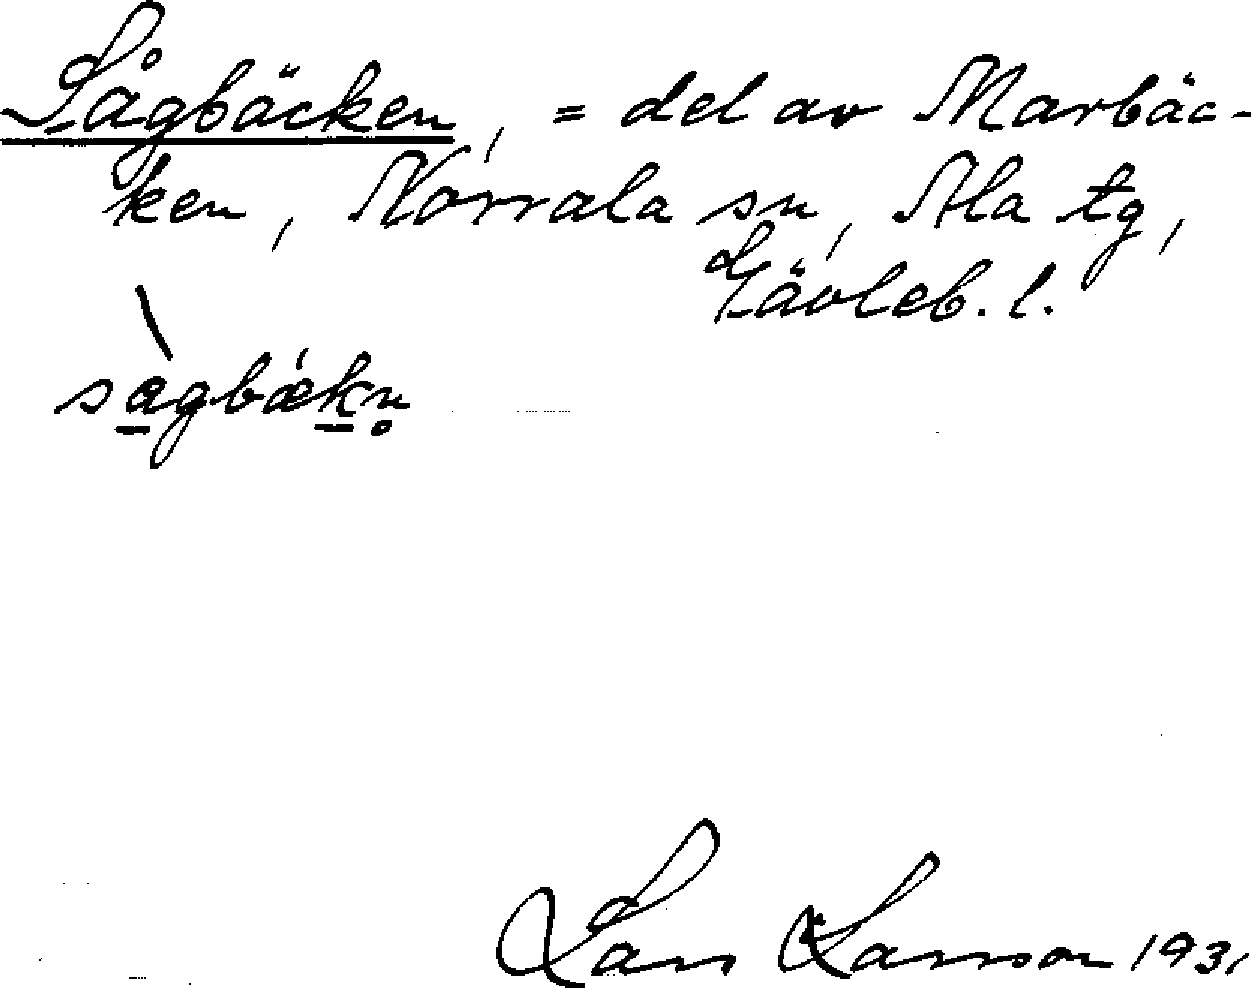 Sågbäcken, = del av Marbäc-
ken, Norrala sn, Ala tg,
Gävleb. l.
sàgbǽkn̥
Lars Larsson 1931